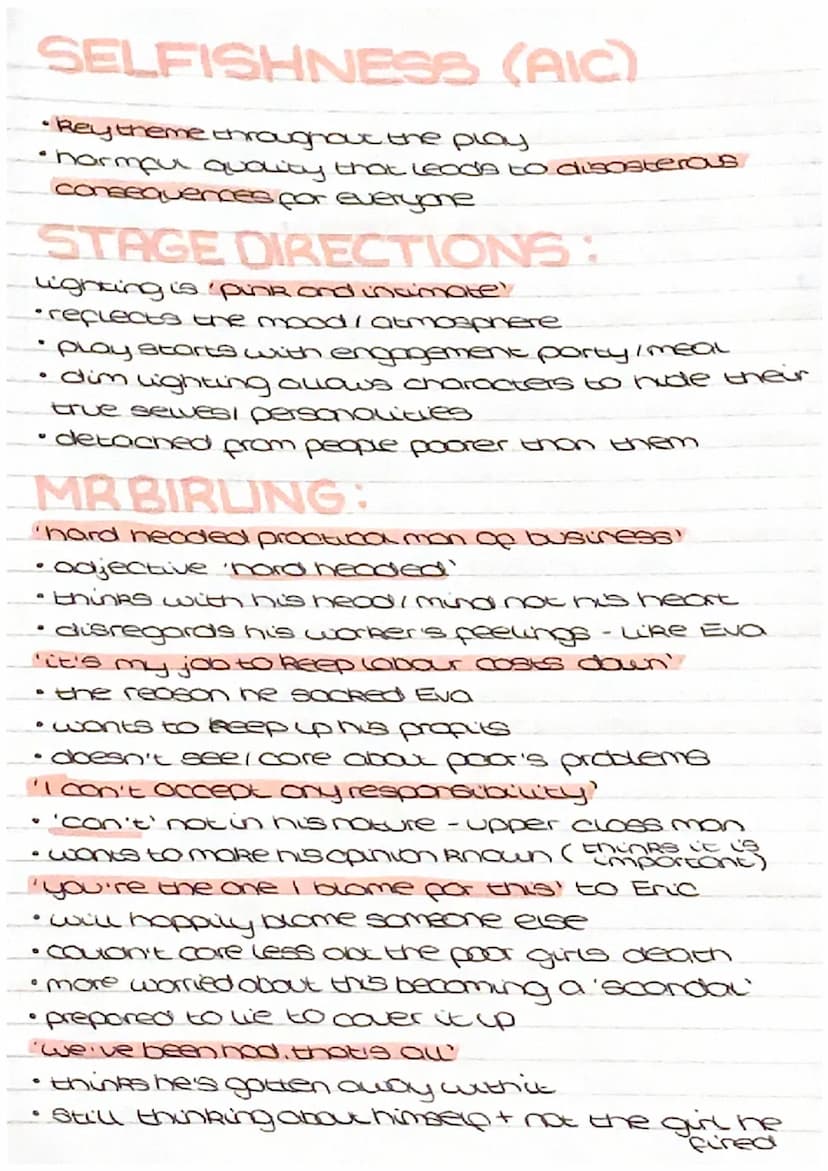 SELFISHNESS (AIC)
• Key theme throughout the play
• harmful quality that leads to disasterous
consequences for everyone
STAGE DIRECTIONS:
Lighting is 'pink and intimate'
• reflects the mood / atmosphere
• play starts with engagement party / meal
• dim lighting allows characters to hide their
true selves / personalities
• detached from people poorer than them
MR BIRLING:
'hard headed practical man of business'
• adjective 'hard headed'
• thinks with his head / mind not his heart
• disregards his worker's feelings - like Eva
'it's my job to keep labour costs down'
• the reason he sacked Eva
• wants to keep up his profits
• doesn't see / care about poor's problems
'I can't accept any responsibility'
• 'can't' not in his nature - upper class man
• wants to make his opinion known (thinks it is
important)
'you're the one I blame for this' to Eric
• will happily blame someone else
• couldn't care less abt the poor girls death
• more worried about this becoming a 'scandal'
• prepared to lie to cover it up
'we've been had, that's all'
• thinks he's gotten away with it
• still thinking about himself + not the girl he
fired